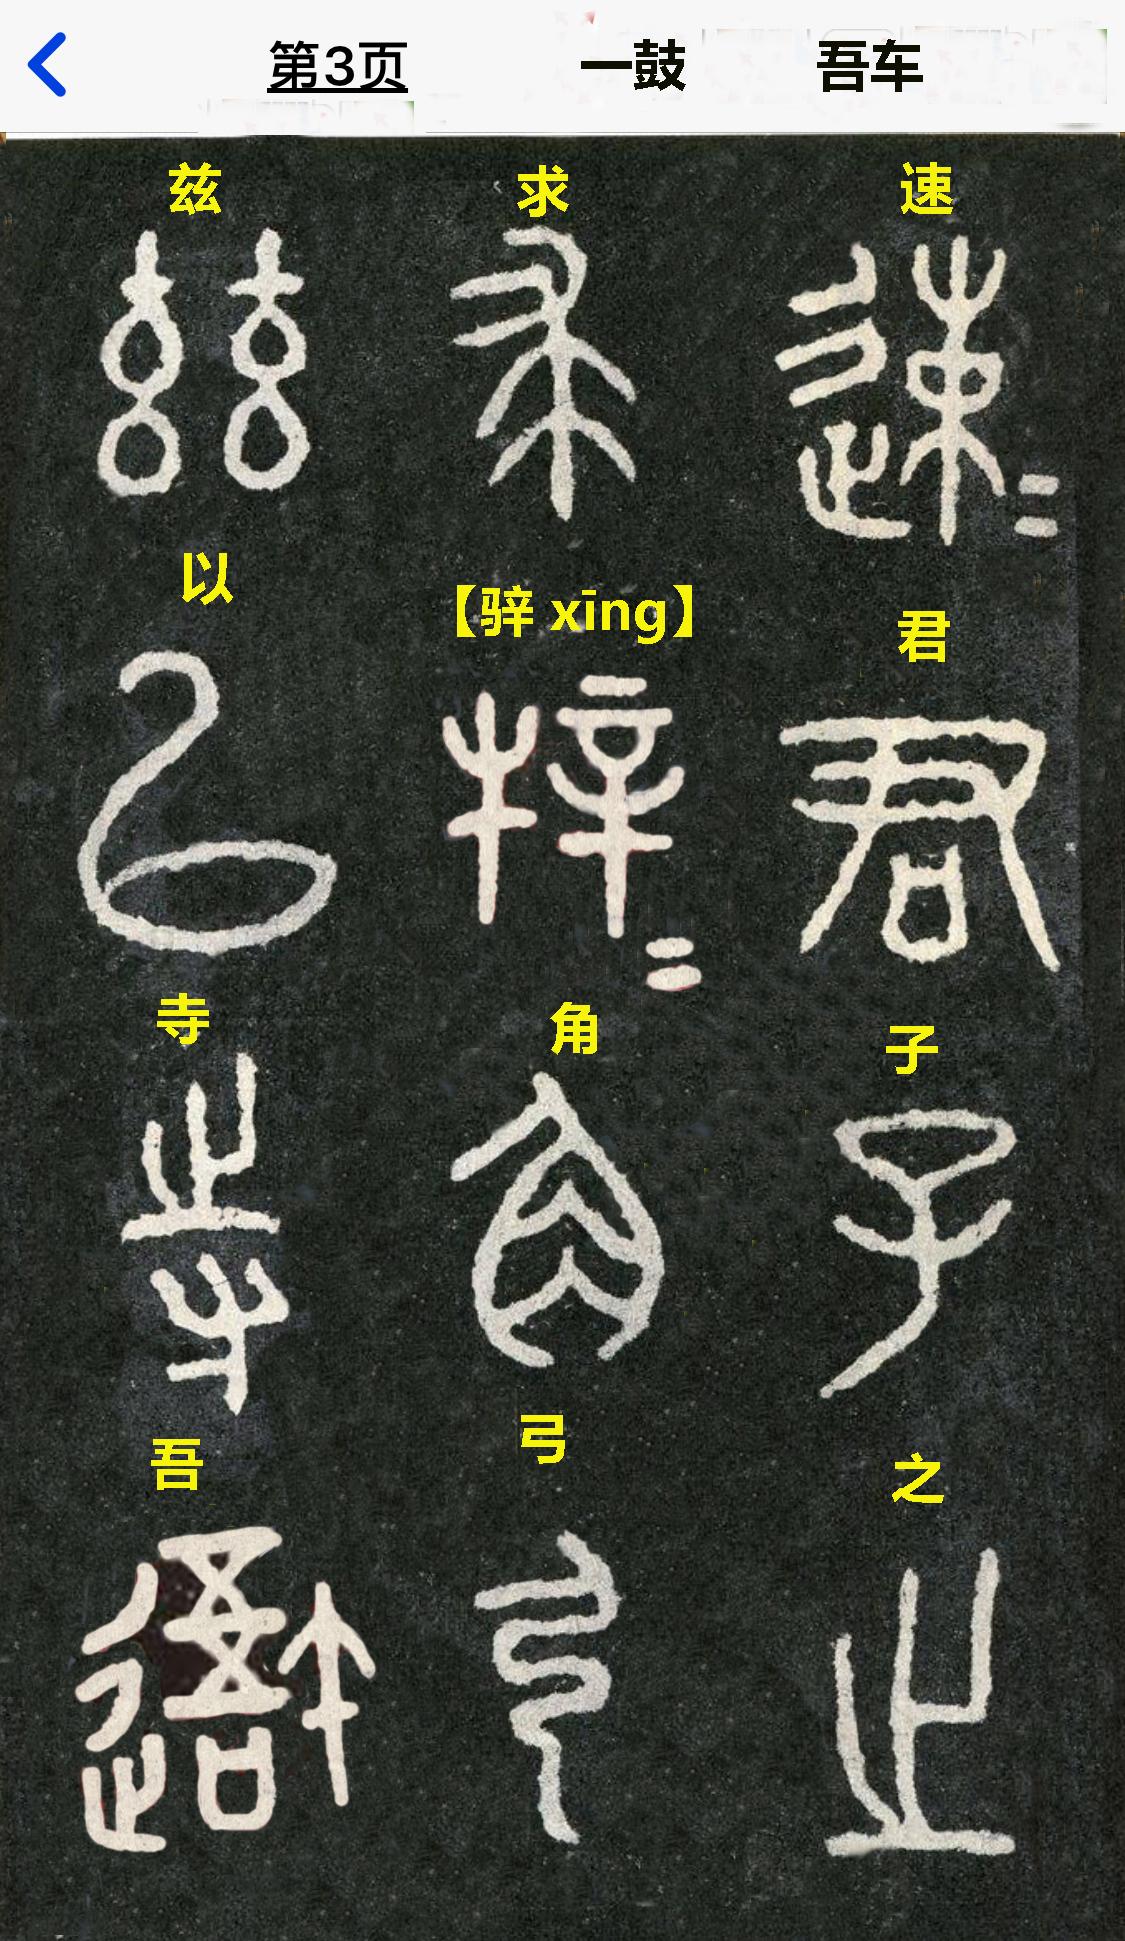 第3页 一鼓 吾车
速
君
子
之
求
【骍 xīng】
角
弓
兹
以
寺
吾